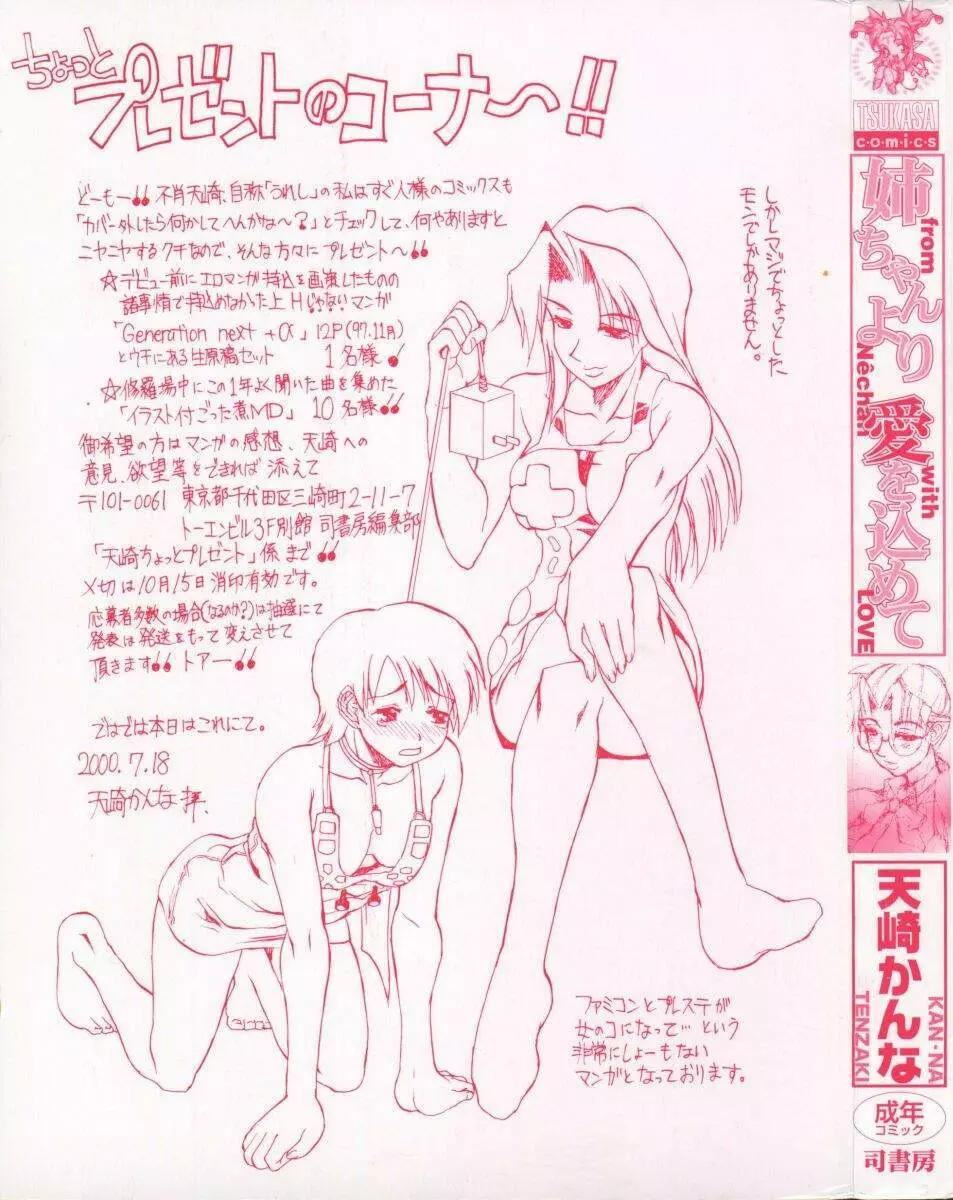 ちょっと
プレゼントのコーナ〜!!
どーもー!! 不肖天崎、自称「うれし」の私はすぐ人様のコミックスも
「カバー外したら何かしてへんかな〜?」とチェックして、何やありますと
ニヤニヤするクチなので、そんな方々にプレゼント〜!!
☆デビュー前にエロマンガ持込を画策したものの
諸事情で持込めなかった上Hじゃないマンガ
「Generation next +α」12P('97.11月)
とウチにある生原稿セット 1名様!
☆修羅場中にこの1年よく聞いた曲を集めた
「イラスト付ごった煮MD」 10名様!!
御希望の方はマンガの感想、天崎への
意見、欲望等をできれば添えて
〒101-0061 東京都千代田区三崎町2-11-7
トーエンビル3F別館 司書房編集部
「天崎ちょっとプレゼント」係まで!!
〆切は10月15日消印有効です。
応募者多数の場合(なるのか?)は抽選にて
発表は発送をもって変えさせて
頂きます!! トァー!!
ではでは本日はこれにて。
2000.7.18
天崎かんな 拝.
しかしマジでちょっとした
モンでしかありません。
ファミコンとプレステが
女のコになって…という
非常にしょーもない
マンガとなっております。
TSUKASA
c・o・m・i・c・s
姉ちゃんより愛を込めて
from Nêchan with LOVE
天崎かんな
KAN・NA
TENZAKI
成年
コミック
司書房